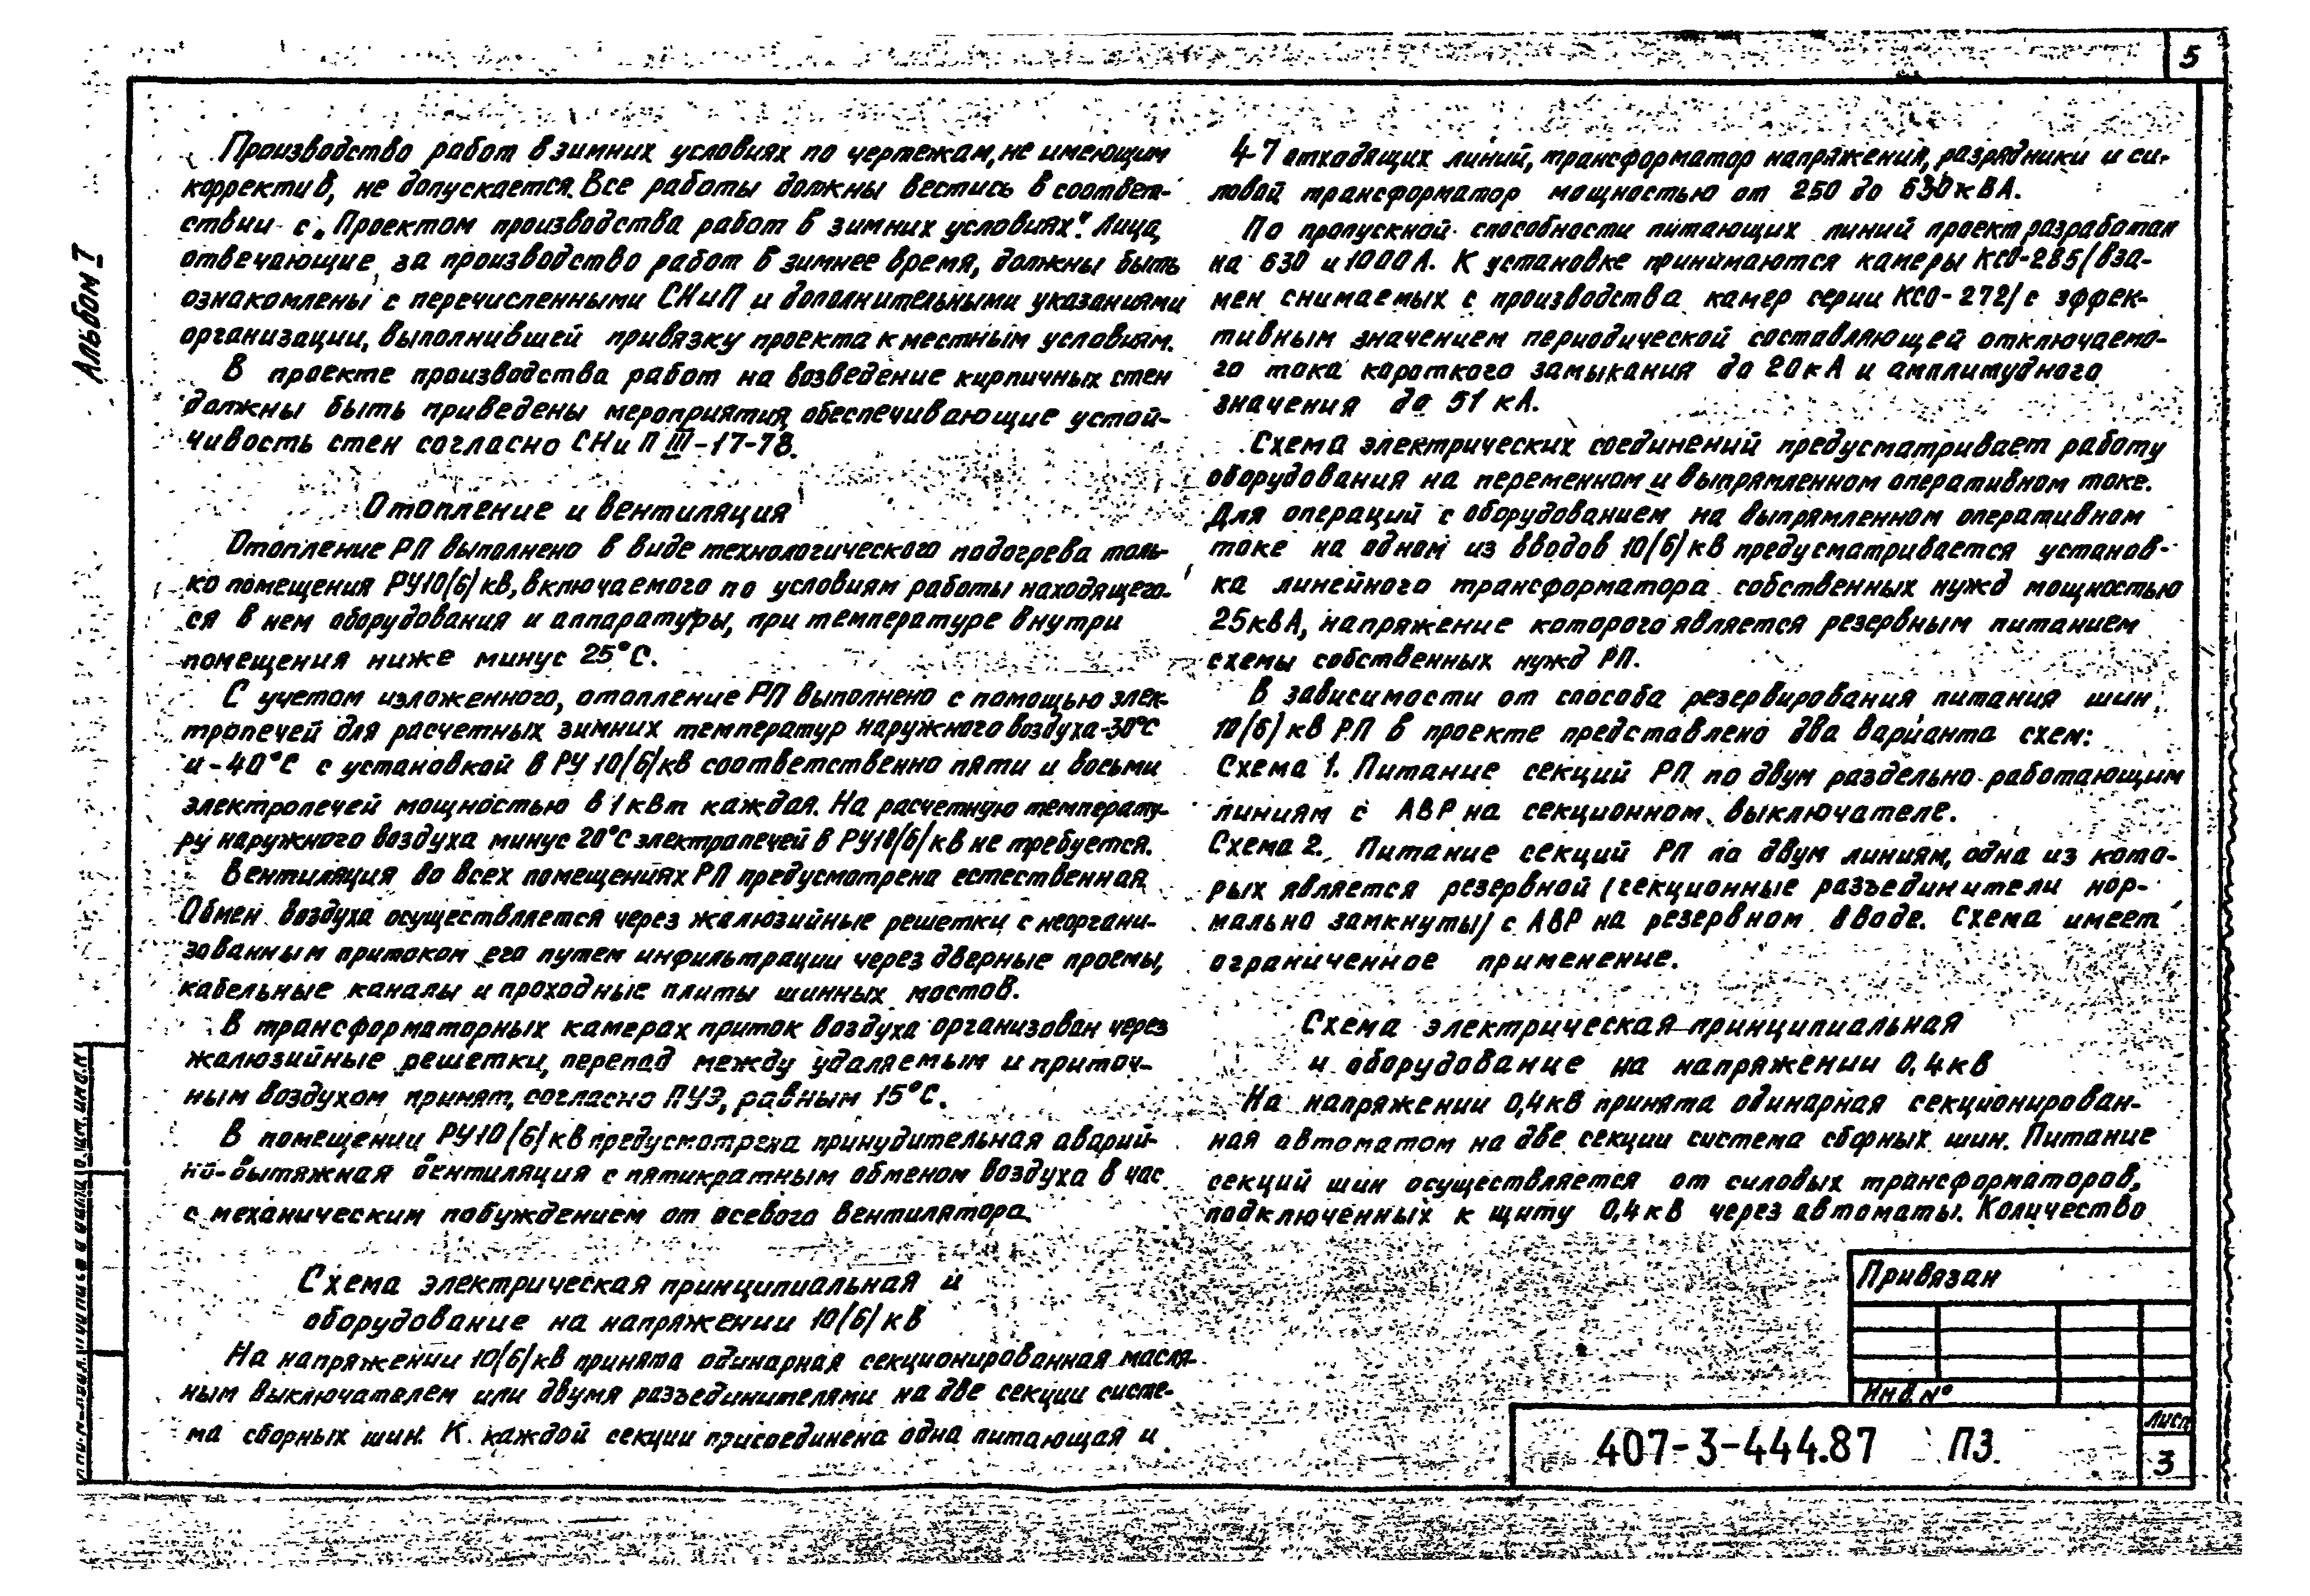 5
Альбом I
Производство работ в зимних условиях по чертежам, не имеющим
корректив, не допускается. Все работы должны вестись в соответ-
ствии с „Проектом производства работ в зимних условиях". Лица,
отвечающие за производство работ в зимнее время, должны быть
ознакомлены с перечисленными СНиП и дополнительными указаниями
организации, выполнившей привязку проекта к местным условиям.
В проекте производства работ на возведение кирпичных стен
должны быть приведены мероприятия, обеспечивающие устой-
чивость стен согласно СНиП III-17-78.
Отопление и вентиляция
Отопление РП выполнено в виде технологического подогрева толь-
ко помещения РУ10(6)кВ, включаемого по условиям работы находящего-
ся в нем оборудования и аппаратуры, при температуре внутри
помещения ниже минус 25°С.
С учетом изложенного, отопление РП выполнено с помощью элек-
тропечей для расчетных зимних температур наружного воздуха -30°С
и -40°С с установкой в РУ 10(6)кВ соответственно пяти и восьми
электропечей мощностью в 1 кВт каждая. На расчетную температу-
ру наружного воздуха минус 20°С электропечей в РУ10(6)кВ не требуется.
Вентиляция во всех помещениях РП предусмотрена естественная.
Обмен воздуха осуществляется через жалюзийные решетки с неоргани-
зованным притоком его путем инфильтрации через дверные проемы,
кабельные каналы и проходные плиты шинных мостов.
В трансформаторных камерах приток воздуха организован через
жалюзийные решетки, перепад между удаляемым и приточ-
ным воздухом принят, согласно ПУЭ, равным 15°С.
В помещении РУ10(6)кВ предусмотрена принудительная аварий-
но-вытяжная вентиляция с пятикратным обменом воздуха в час
с механическим побуждением от осевого вентилятора.
Схема электрическая принципиальная и
оборудование на напряжении 10(6)кВ
На напряжении 10(6)кВ принята одинарная секционированная масля-
ным выключателем или двумя разъединителями на две секции систе-
ма сборных шин. К каждой секции присоединена одна питающая и
4-7 отходящих линий, трансформатор напряжения, разрядники и си-
ловой трансформатор мощностью от 250 до 630кВА.
По пропускной способности питающих линий проект разработан
на 630 и 1000А. К установке принимаются камеры КСО-285(вза-
мен снимаемых с производства камер серии КСО-272) с эффек-
тивным значением периодической составляющей отключаемо-
го тока короткого замыкания до 20кА и амплитудного
значения до 51 кА.
Схема электрических соединений предусматривает работу
оборудования на переменном и выпрямленном оперативном токе.
Для операций с оборудованием на выпрямленном оперативном
токе на одном из вводов 10(6)кВ предусматривается установ-
ка линейного трансформатора собственных нужд мощностью
25кВА, напряжение которого является резервным питанием
схемы собственных нужд РП.
В зависимости от способа резервирования питания шин
10(6)кВ РП в проекте представлено два варианта схем:
Схема 1. Питание секций РП по двум раздельно работающим
линиям с АВР на секционном выключателе.
Схема 2. Питание секций РП по двум линиям, одна из кото-
рых является резервной (секционные разъединители нор-
мально замкнуты) с АВР на резервном вводе. Схема имеет
ограниченное применение.
Схема электрическая принципиальная
и оборудование на напряжении 0,4кВ
На напряжении 0,4кВ принята одинарная секционирован-
ная автоматом на две секции система сборных шин. Питание
секций шин осуществляется от силовых трансформаторов,
подключенных к щиту 0,4кВ через автоматы. Количество
Привязан
Инв. №
407-3-444.87 ПЗ
Лист
3